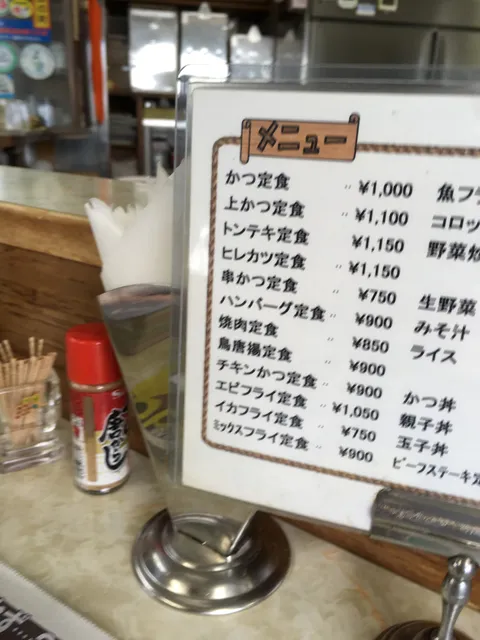 メニュー
かつ定食 ‥ ¥1,000
上かつ定食 ‥ ¥1,100
トンテキ定食 ‥ ¥1,150
ヒレカツ定食 ‥ ¥1,150
串かつ定食 ‥ ¥750
ハンバーグ定食 ‥ ¥900
焼肉定食 ‥ ¥850
鳥唐揚定食 ‥ ¥900
チキンかつ定食 ‥ ¥900
エビフライ定食 ‥ ¥1,050
イカフライ定食 ‥ ¥750
ミックスフライ定食 ‥ ¥900
魚フラ
コロッ
野菜炒
生野菜
みそ汁
ライス
かつ丼
親子丼
玉子丼
ビーフステーキ定